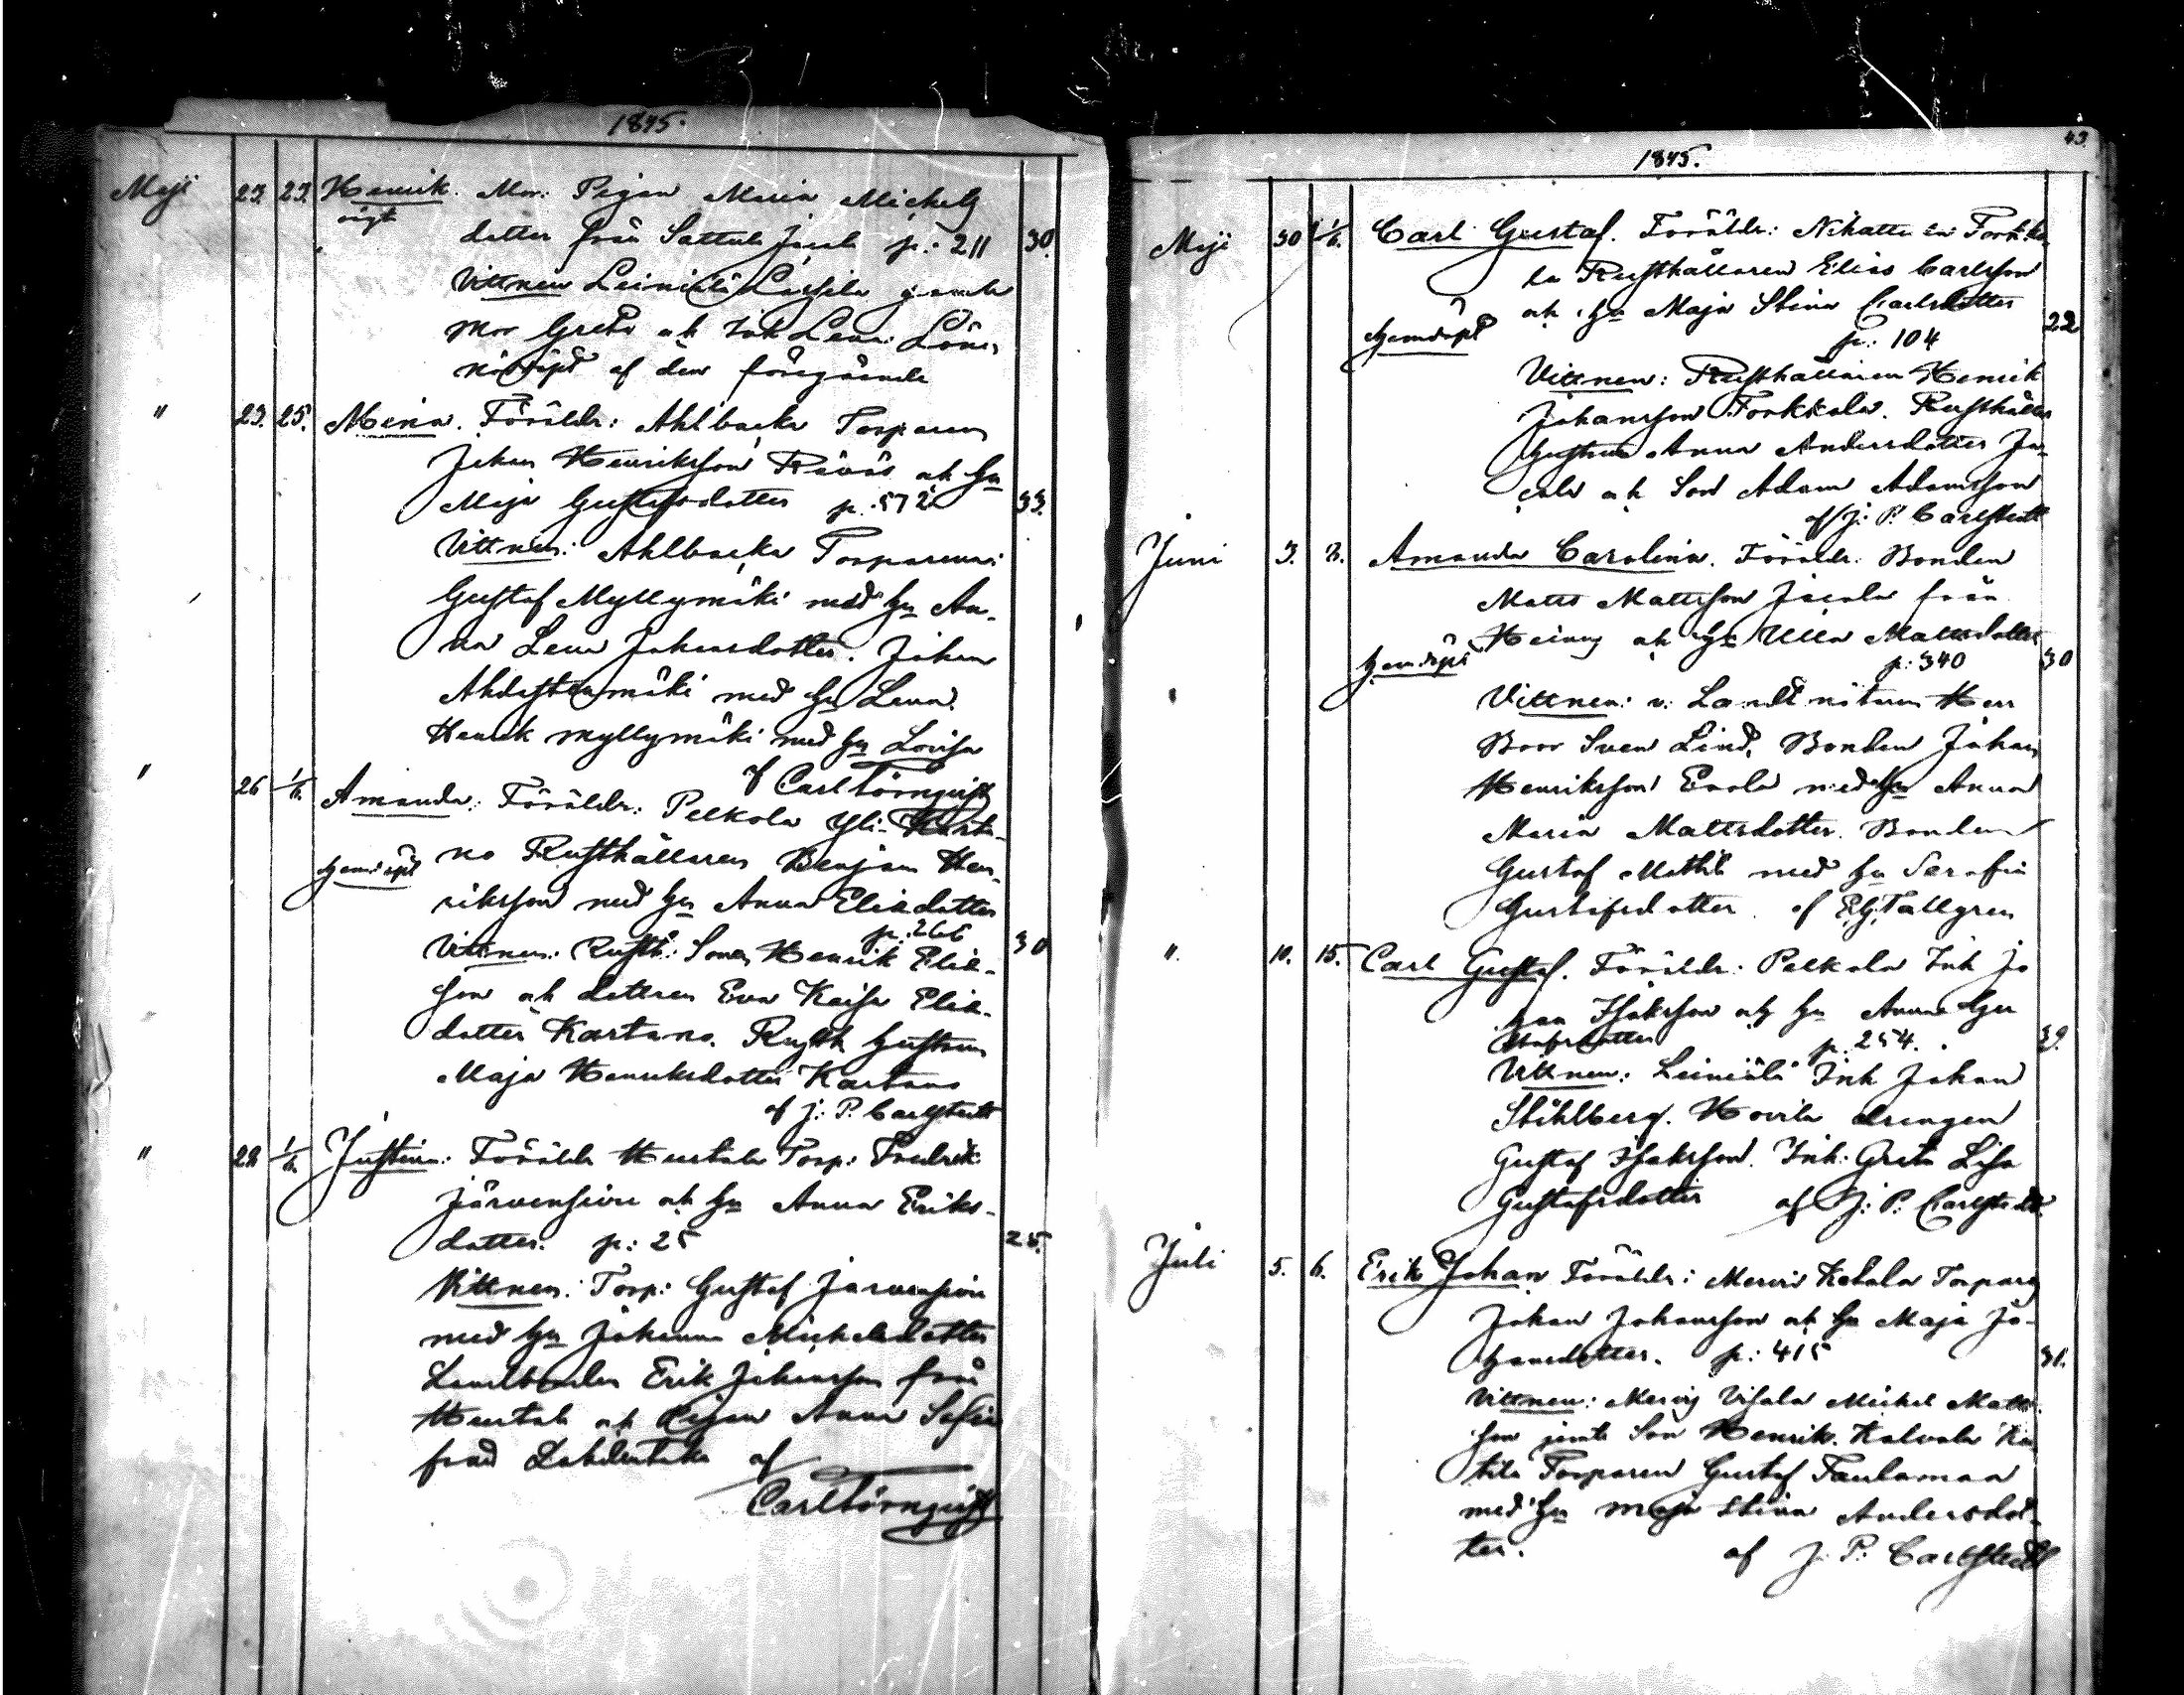 1845.
Maji 23. 23. Henrik. Mor: Pigan Maria Michels
oägt
dotter från Sattula Jacala p: 211 30.
Vittnen Leiniälä Lassila gamla
Mor Greta och Inh Lena
nöddöpt af den föregående
" 23. 25. Mina. Föräldr: Ahlbacka Torparen
Johan Henriksson och hu
Maja Gustafsdotter p: 572 33.
Vittnen: Ahlbacka Torparena:
Gustaf Myllymäki med hu An-
na Lena Johansdotter. Johan
med hu Lena.
Henrik Myllymäki med hu Lovisa
af Carl Törnqvist
" 26 1/6. Amanda. Föräldr: Pelkola Yli-Karta-
no Rusthållaren Benjam Hen-
hemdöpt
riksson med hu Anna Eliedotter
p: 266
Vittnen: Rusth: Sonen Henrik Elie- 30
son och dottren Eva Kaisa Elie-
dotter Kartano. Rusth hustrun
Maja Henriksdotter Kartano
af J: P. Carlstedt
" 28 1/6. Justina: Föräldr Torp: Fredrik
Järvensivu och hu Anna Eriks-
dotter. p: 25 25.
Vittnen: Torp: Gustaf Järvensivu
med hu Johanna Michelsdotter
Landbonden Erik Johansson från
och Pigan Anna Sofia
från af
Carl Törnqvist
43.
1845.
Maji 30 1/6. Carl Gustaf. Föräldr: Nihattula Torkko-
la Rusthållaren Elias Carlsson
och hu Maja Stina Carlsdotter 22
hemdöpt
p: 104
Vittnen: Rusthållaren Henrik
Johansson Torkkola. Rusthålls
hustrun Anna Andersdotter Ja-
cala och Son Adam Adamsson
af J: P. Carlstedt
Juni 3. 8. Amanda Carolina. Föräldr: Bonden
Matts Mattsson Jacala från
och hu Ulla Mattsdotter
hemdöpt p: 340 30
Vittnen: v: Herr
Sven Lind, Bonden Johan
Henriksson Eerola med hu Anna
Maria Mattsdotter. Bonden
Gustaf Mattila med hu Serafia
Gustafsdotter. af Tallgren
". 10. 15. Carl Gustaf. Föräldr: Pelkola Inh Jo
han Isaksson och hu Anna Gu
stafsdotter p: 254. 39.
Vittnen: Leiniälä Inh Johan
Ståhlberg. Hovila drengen
Gustaf Isaksson. Inh: Greta Lisa
Gustafsdotter af J: P. Carlstedt.
Juli 5. 6. Erik Johan Föräldr: Mervi Ketola Torparen
Johan Johansson och hu Maja Jo-
hansdotter. p: 415 31.
Vittnen: Mervi Uksila Michel Matts-
son jemte Son Henrik. Kalvola
tila Torparen Gustaf Taulamaa
med hu Maja Stina Andersdot-
ter. af J. P. Carlstedt